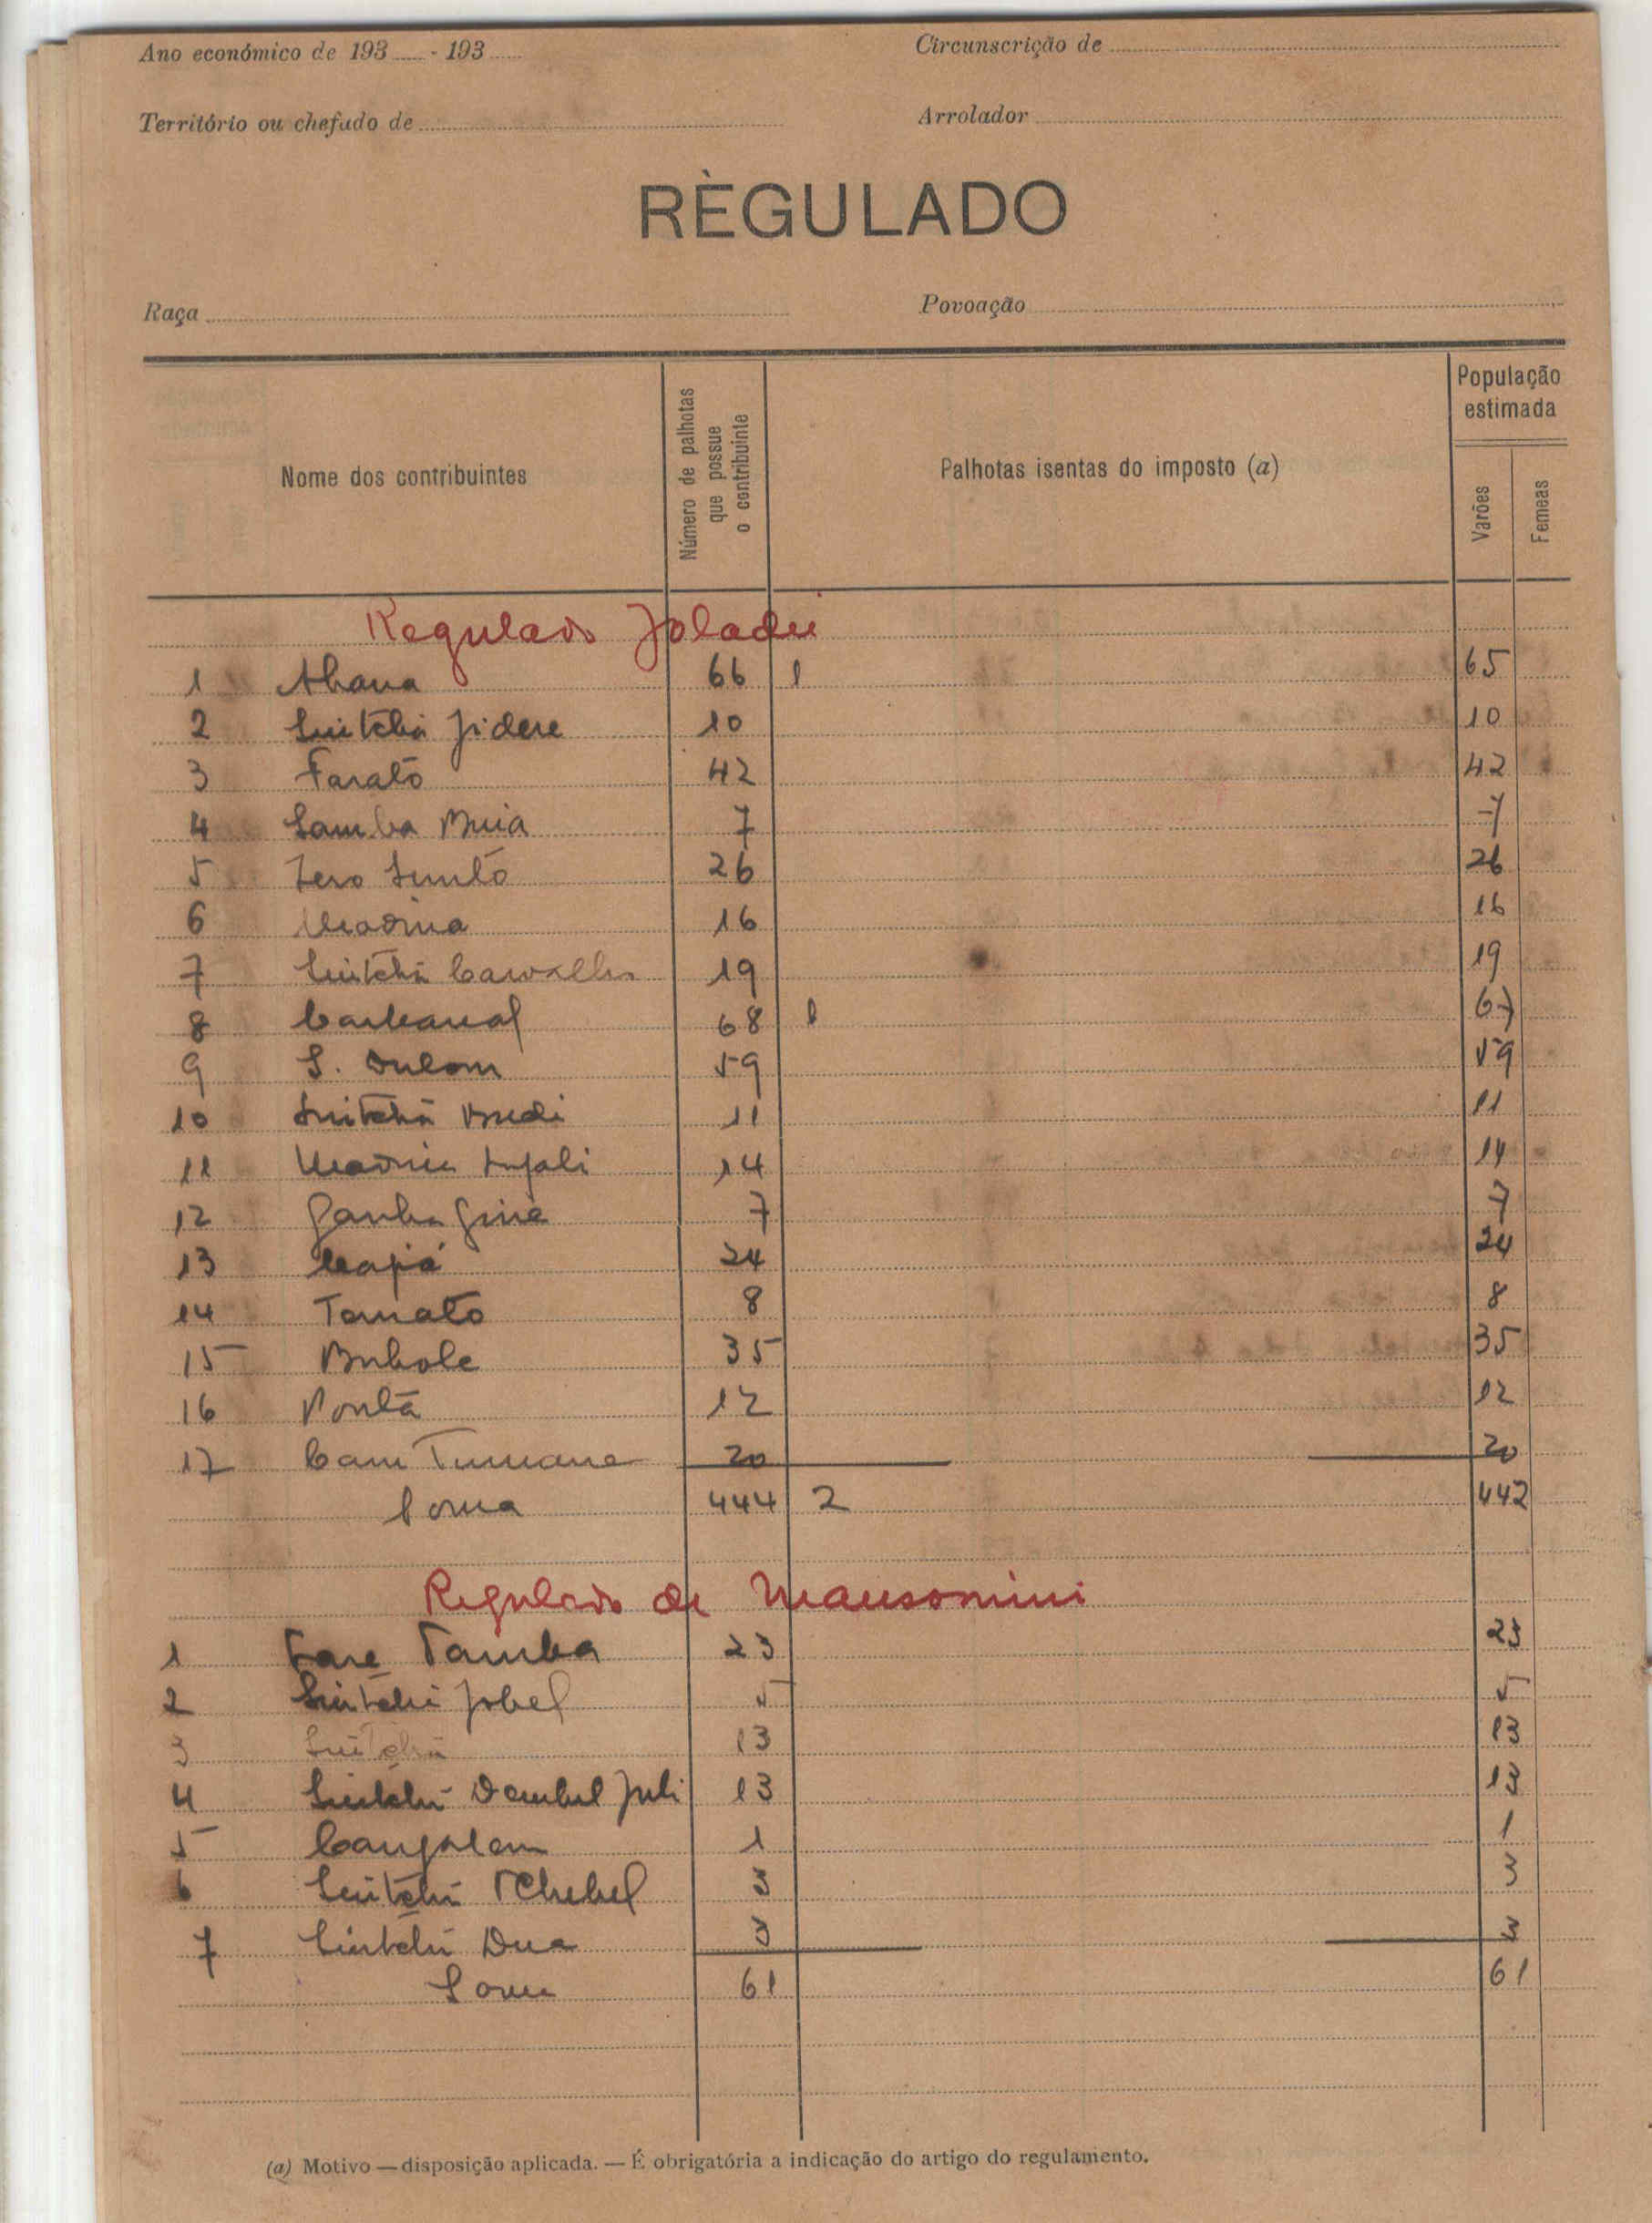 Ano económico de 193 - 193
Circunscrição de
Território ou chefado de
Arrolador
RÈGULADO
Raça
Povoação
Nome dos contribuintes
Número de palhotas que possue o contribuinte
Palhotas isentas do imposto (a)
População estimada
Varões
Femeas
Regulado Joladu
1 Abana 66 1 65
2 Sintchã Jidere 10 10
3 Farató 42 42
4 Samba 7 7
5 Zero 26 26
6 Madina 16 16
7 Sintchã Carvalho 19 19
8 68 1 67
9 S. 59 59
10 Sintchã 11 11
11 Madina 14 14
12 7 7
13 24 24
14 Tamató 8 8
15 35 35
16 Pontã 12 12
17 Cam Tumane 20 20
Soma 444 2 442
Regulado de Mansomini
1 Fare Tamba 23 23
2 Sintchã Jobel 5 5
3 Sintchã 13 13
4 Sintchã Dembel Juli 13 13
5 1 1
6 Sintchã 3 3
7 Sintchã 3 3
Soma 61 61
(a) Motivo — disposição aplicada. — É obrigatória a indicação do artigo do regulamento.